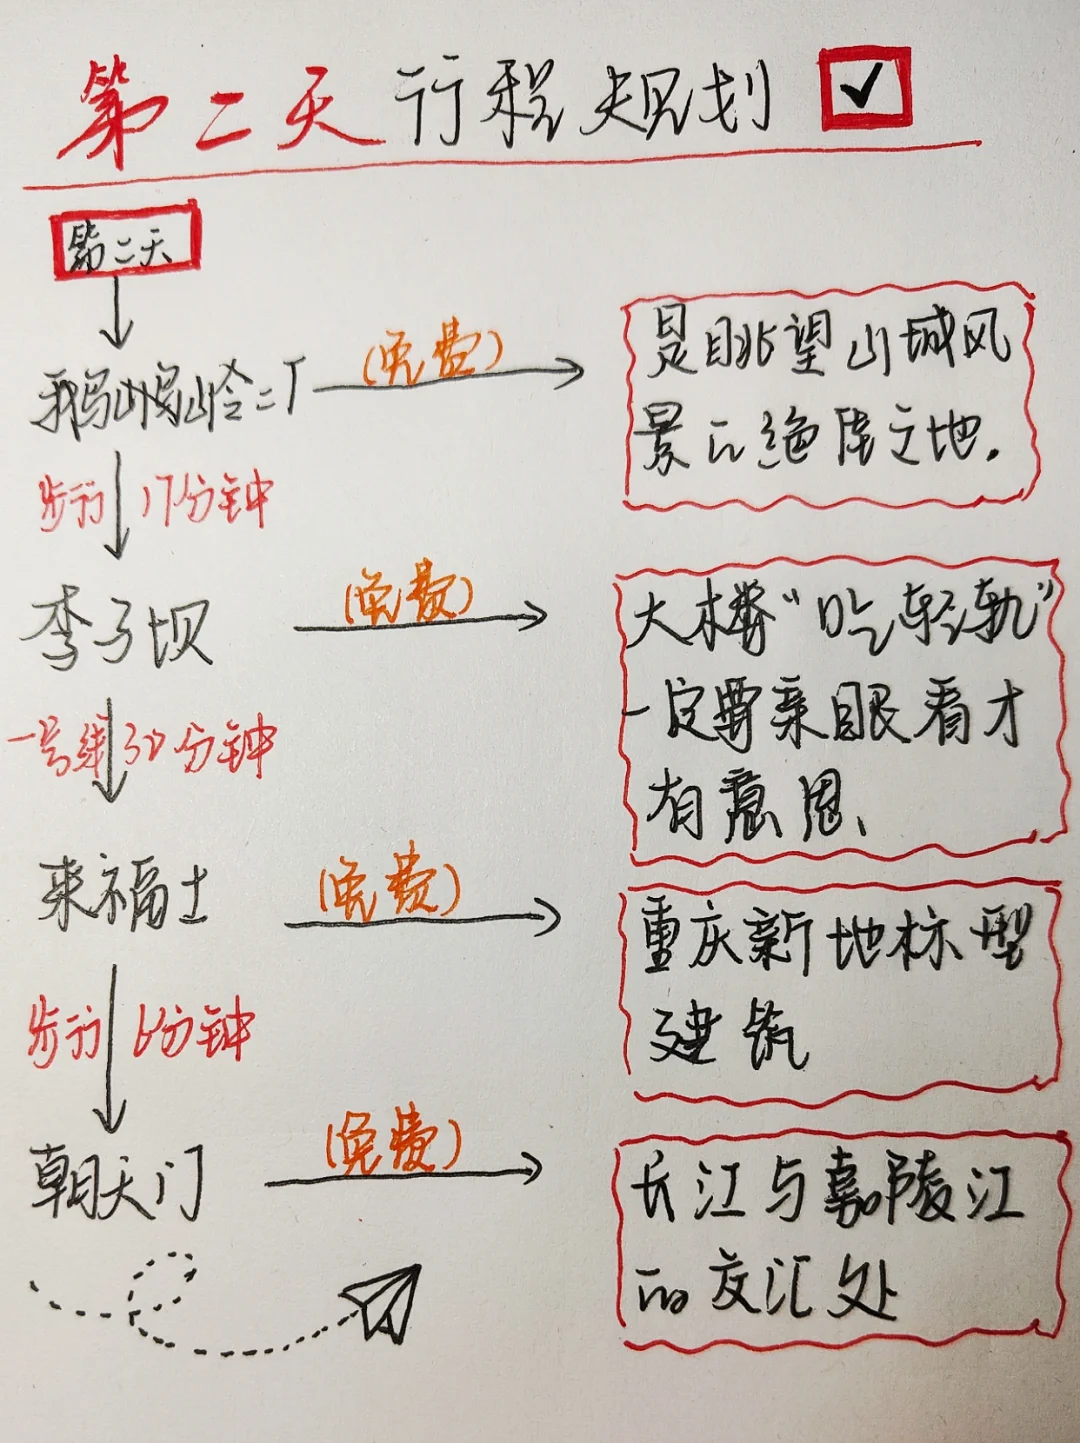 第二天行程规划
第二天
鹅岭二厂
(免费)
是眺望山城风
景的绝佳之地.
步行 17分钟
李子坝
(免费)
大楼“吃轻轨”
一定要亲眼看才
有意思、
一号线30分钟
来福士
(免费)
重庆新地标型
建筑
步行 6分钟
朝天门
(免费)
长江与嘉陵江
的交汇处